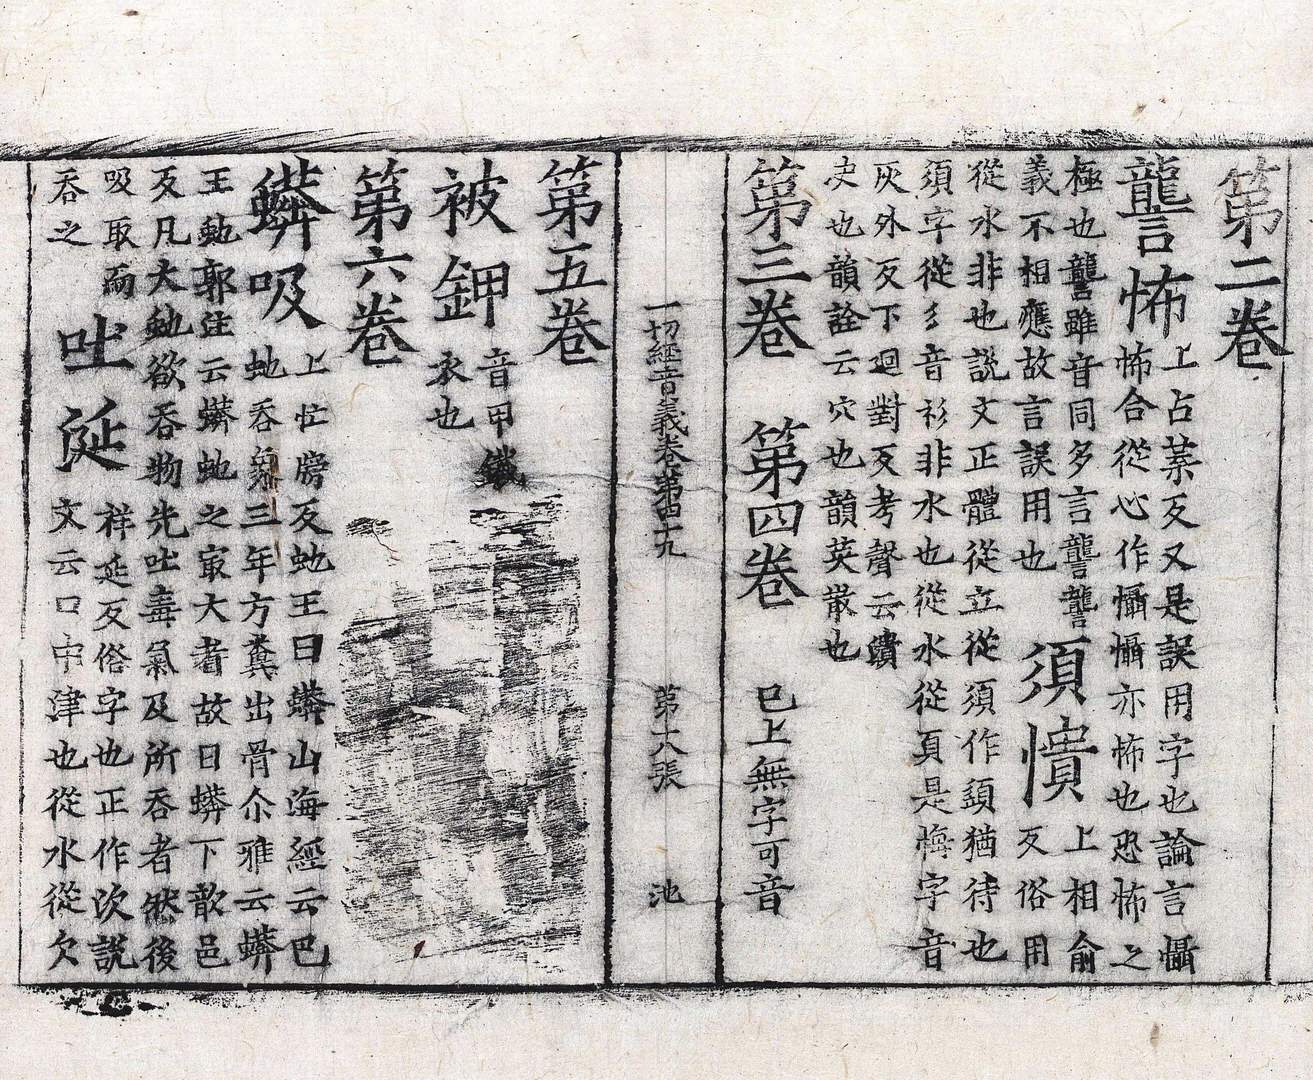 第二卷
讋怖上占葉反又是誤用字也論言懾
怖合從心作懾懾亦怖也恐怖之
極也讋雖音同多言讋讋
義不相應故言誤用也
須憒上相俞
反俗用
從水非也説文正體從立從須作䇓猶待也
須字從彡音衫非水也從水從頁是悔字音
灰外反下迴對反考聲云憒
決也韻詮云穴也韻英散也
第三卷 第四卷 已上無字可音
一切經音義卷第四十九 第十八張 池
第五卷
被鉀音甲鐵
衣也
第六卷
蟒吸上忙牓反虵王曰蟒山海經云巴
虵吞象三年方糞出骨尒雅云蟒
王虵郭注云蟒虵之㝡大者故曰蟒下歆邑
反凡大虵欲吞物先吐毒氣及所吞者然後
吸取而
吞之
吐涎祥延反俗字也正作㳄説
文云口中津也從水從欠